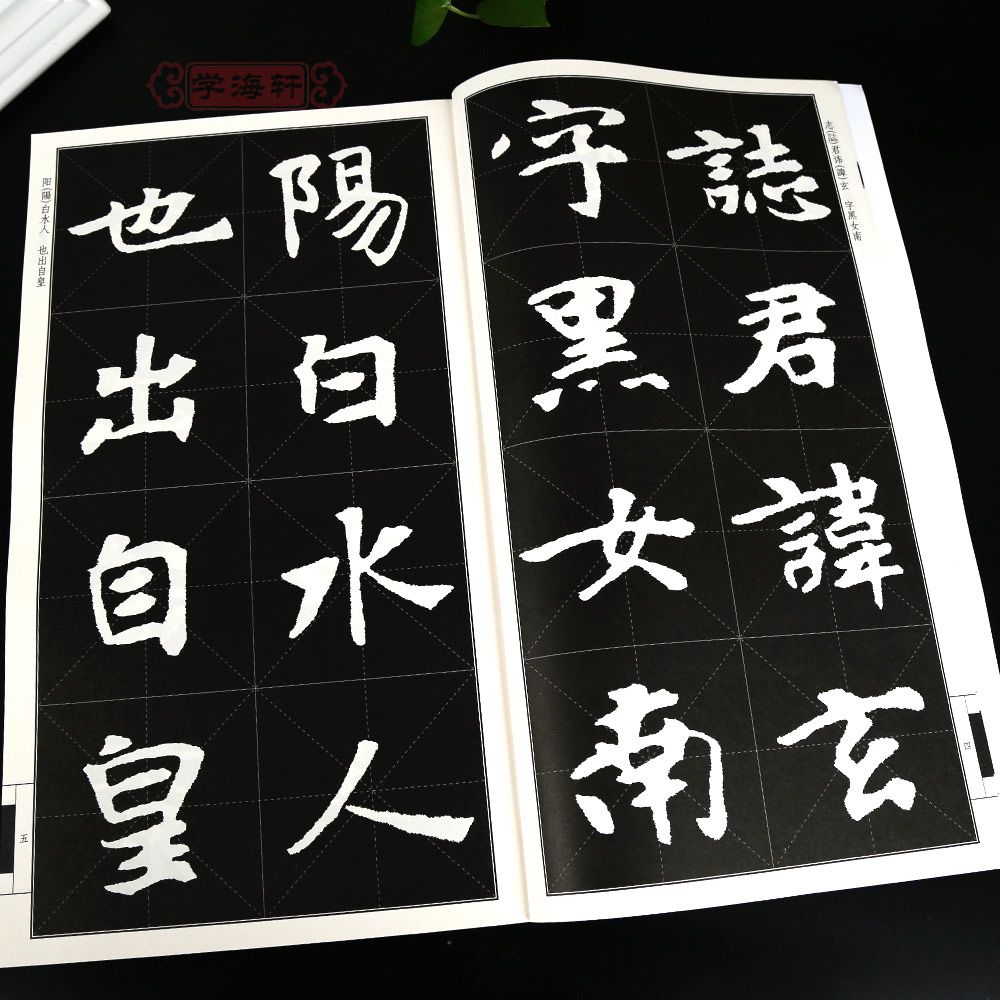 学海轩
志(誌)君讳(諱)玄 字黑女南
誌君諱玄
字黑女南
四
阳(陽)白水人 也出自皇
陽白水人
也出自皇
五